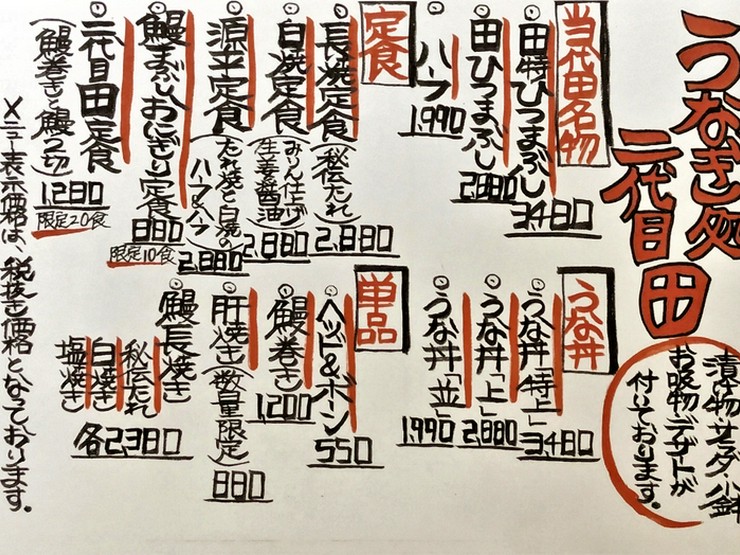 うなぎ処
二代目 田
漬物・サラダ・小鉢
お吸物・デザートが
付いております。
当代田名物
田特ひつまぶし 3480
田ひつまぶし 2880
ハーフ 1,990
定食
長い焼定食(秘伝たれ) 2,880
白焼定食(みりん仕上げ
生姜醤油) 2,880
源平定食(たれ焼と白焼の
ハーフ&ハーフ) 2,880
鰻まぶしおにぎり定食 880
限定10食
二代目田定食
(鰻巻きと鰻2切) 1,280
限定20食
うな丼
うな丼「特上」 3480
うな丼「上」 2,880
うな丼「並」 1,990
単品
ヘッド&ボーン 550
鰻巻き 1,200
肝焼き(数量限定) 880
鰻長焼き
秘伝たれ
白焼き
塩焼き
各2,380
メニュー表示価格は、税抜き価格となっております。